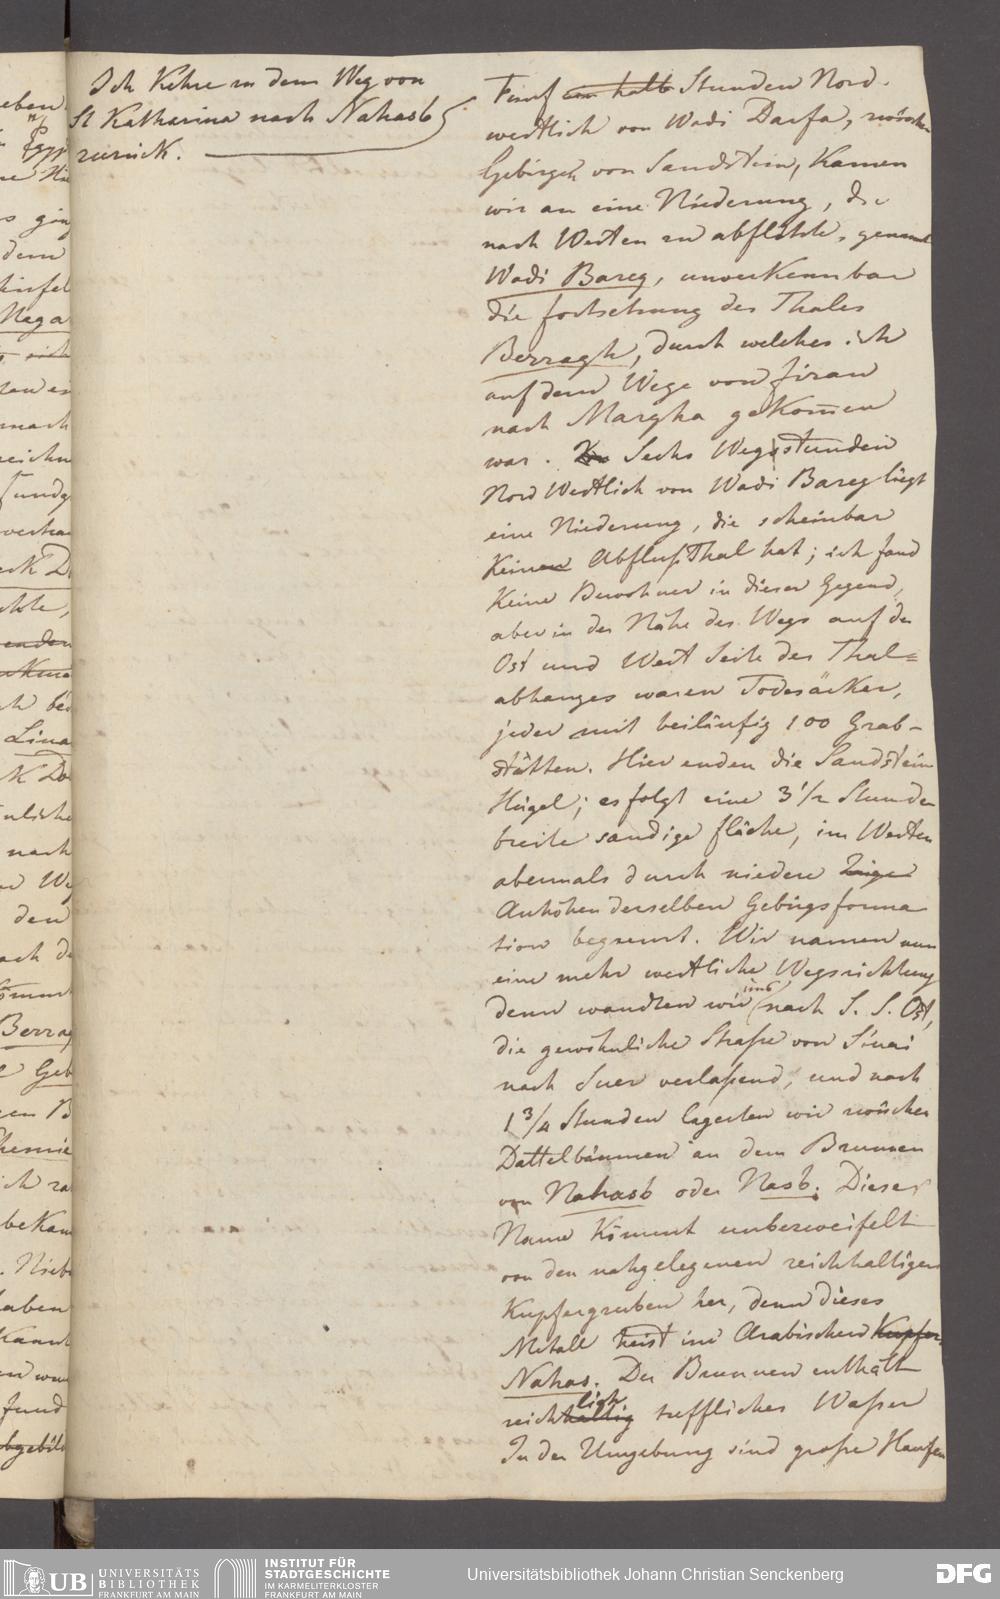 Ich Kehre zu dem Weg von
St Katharina nach Nahasb
zurück.
Fünf ein halb Stunden Nord-
westlich von Wadi Darfa, zwischen
Gebirgen von Sandstein, Kamen
wir an eine Niederung, die
nach Westen zu abflößte, genannt
Wadi Bareg, unverkennbar
die fortsetzung des Thales
Berragh, durch welches ich
auf dem Wege von firan
nach Margha gekom̄en
war. Sechs Wegsstunden
Nord Westlich von Wadi Bareg liegt
eine Niederung, die scheinbar
Keinen Abfluß Thal hat; ich fand
Keine Bewohner in dieser Gegend,
aber in der Nähe des Wegs auf der
Ost und West Seite des Thal=
abhanges waren Todesäcker,
jeder mit beiläufig 100 Grab-
stätten. Hier enden die Sandstein
Hügel; es folgt eine 3 1/2 Stunden
breite sandige fläche, im Westen
abermals durch niedere
Anhöhen derselben Gebirgsforma
tion begrenzt. Wir namen nun
eine mehr westliche Wegsrichtung
denn wandten wir uns nach S. S. Ost,
die gewöhnliche Straße von Sinai
nach Suez verlaßend, und nach
1 3/4 Stunden lagerten wir zwischen
Dattelbäumen an dem Brunnen
von Nahasb oder Nasb. Dieser
Name Kömmt unbezweifelt
von den nahgelegenen reichhaltigen
Kupfergruben her, denn dieses
Metall heist im Arabischen Kupfer
Nahas. Der Brunnen enthält
reichhaltig lich treffliches Waßer
In der Umgebung sind große Haufen
UB UNIVERSITÄTS
BIBLIOTHEK
FRANKFURT AM MAIN
INSTITUT FÜR
STADTGESCHICHTE
IM KARMELITERKLOSTER
FRANKFURT AM MAIN
Universitätsbibliothek Johann Christian Senckenberg
DFG